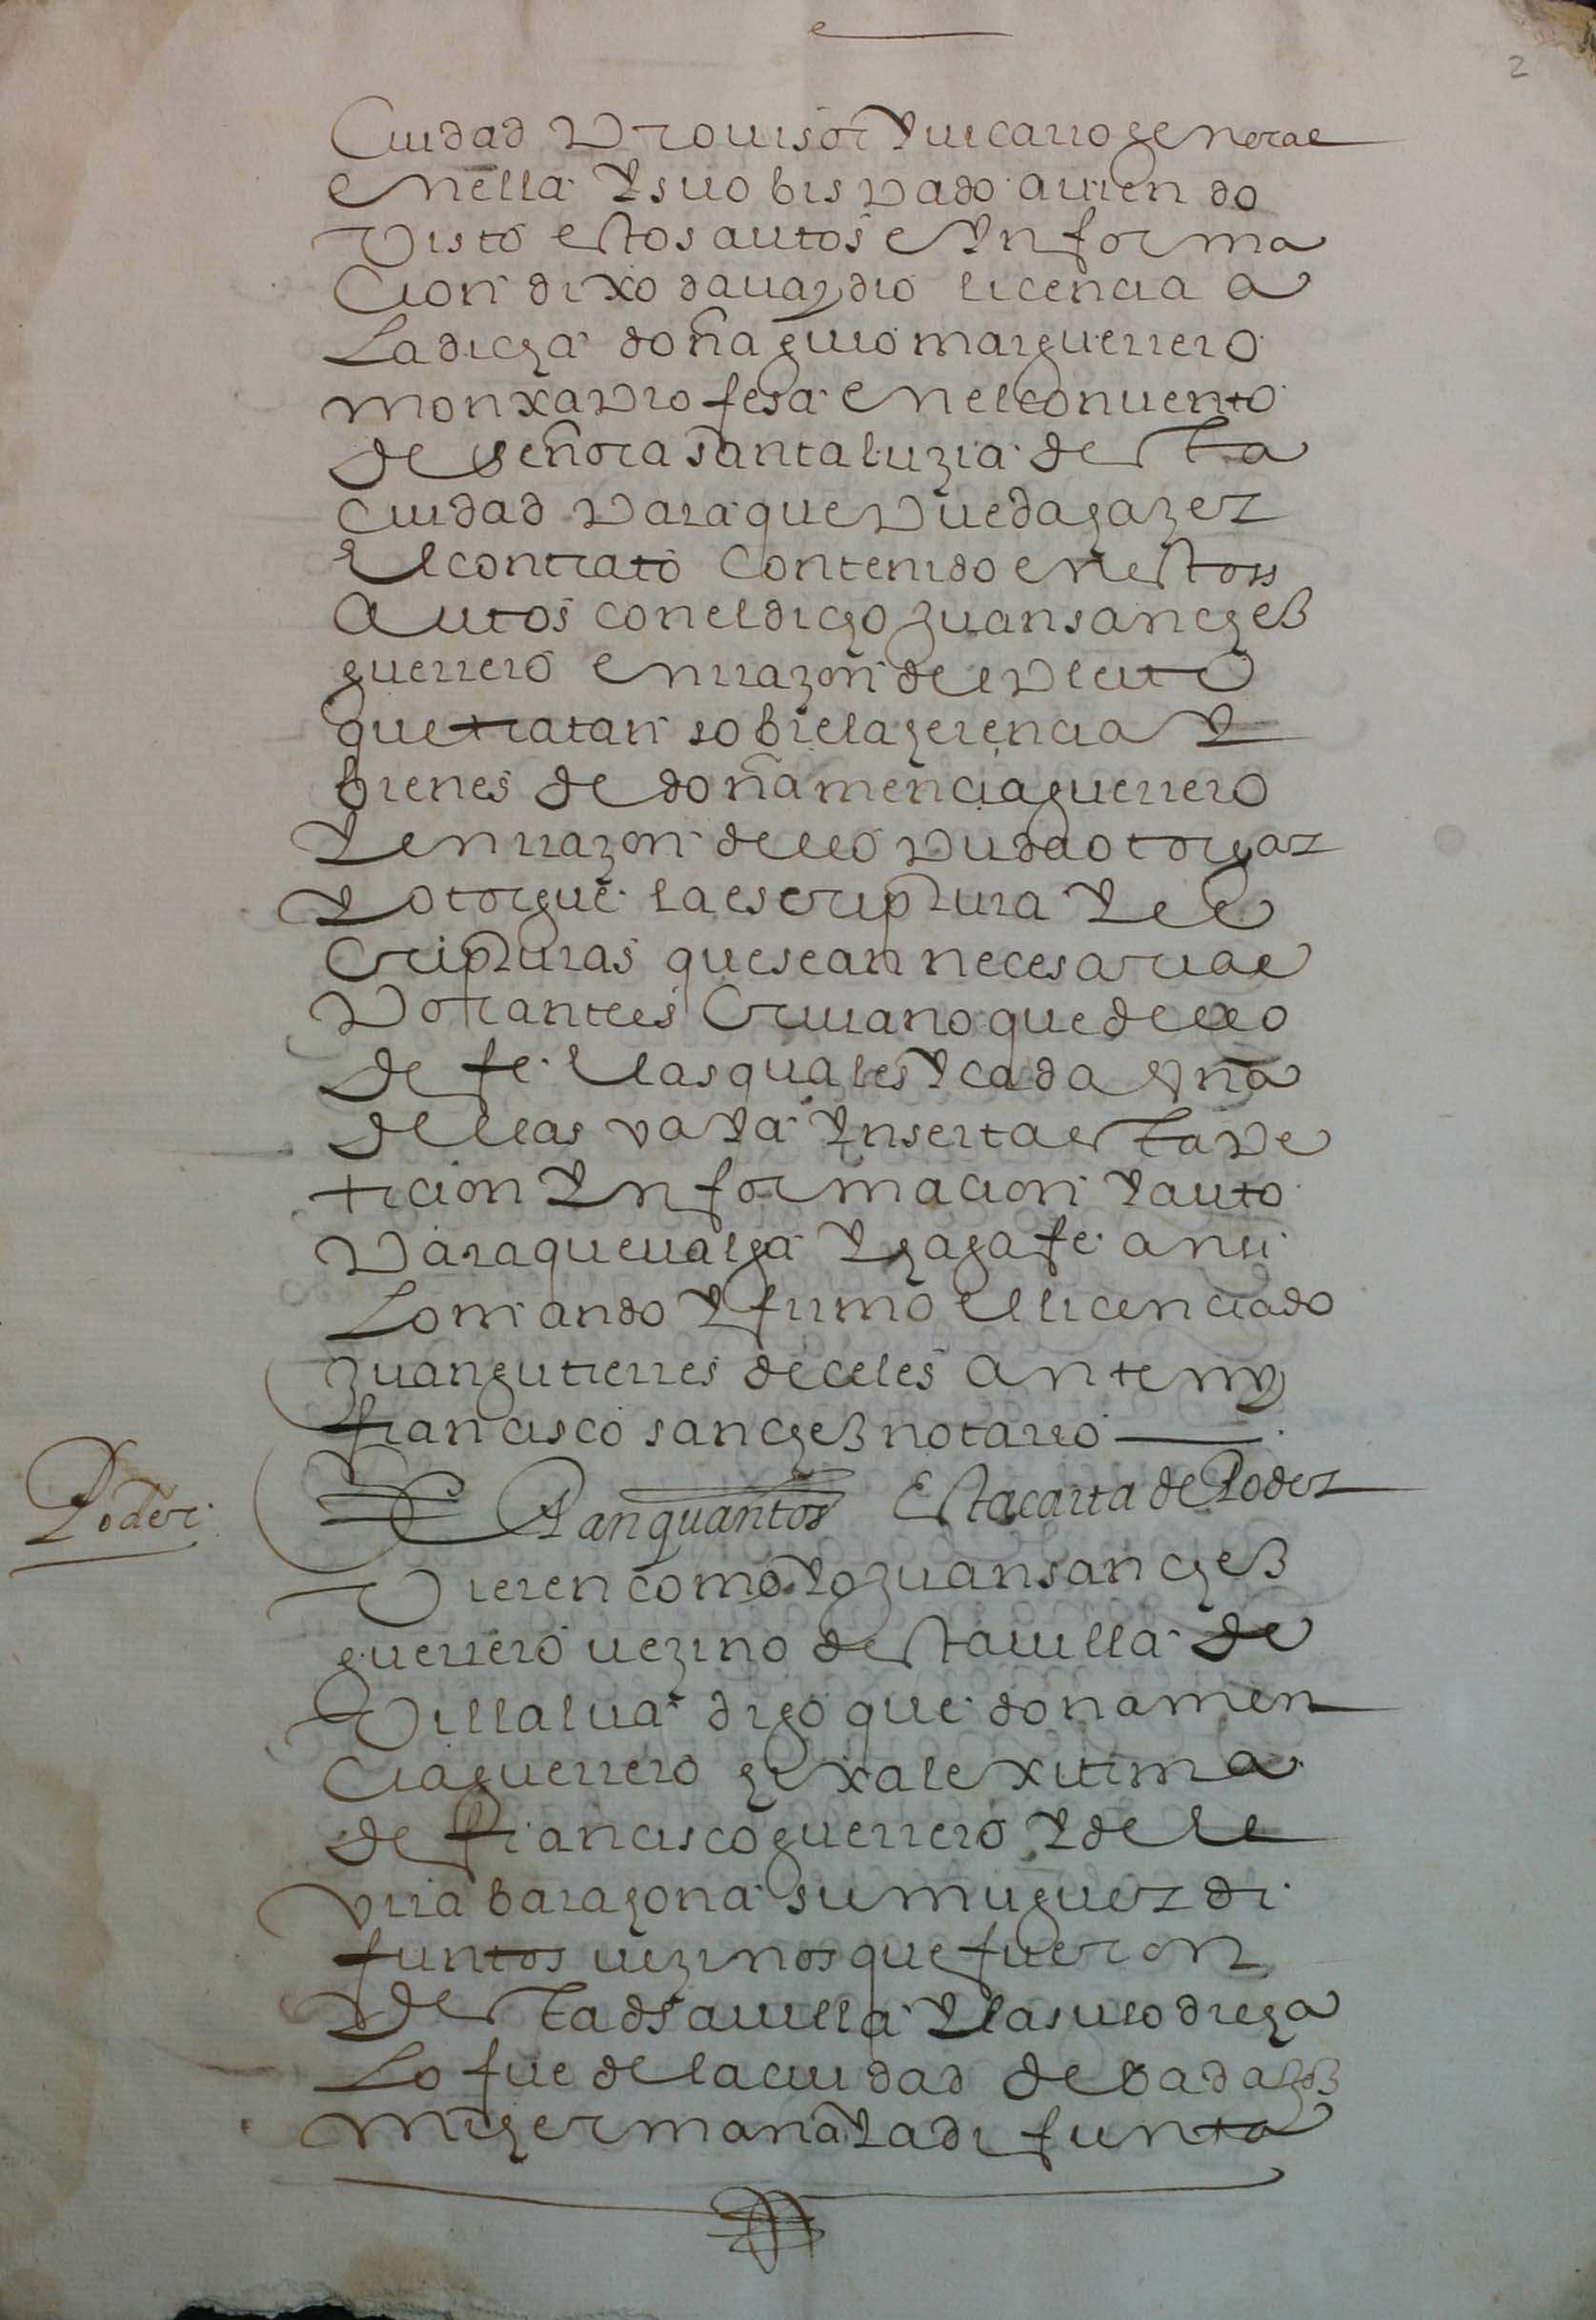 2
Ciudad Provisor Y vicario general
enella Y su obispado aviendo
Visto estos autos e Ynforma
cion dixo dava y dio licencia a
La dicha doña guiomar guerrero
monxa profesa en el convento
de señora santa luzia desta
ciudad para que pueda hazer
El contrato contenido en estos
autos con el dicho Juan sanchez
guerrero en rrazon del pleito
que tratan sobre la herencia Y
bienes de doña mencia guerrero
Y en rrazon dello pueda otorgar
Y otorgue la escriptura Y es
cripturas que sean necesarias
Por ante escrivano que dello
de fe. E las quales Y cada vna
dellas vaYa Ynserta esta pe
ticion Ynformacion Y auto
Para que valga Y haga fe ansi
Lo mando Y firmo el licenciado
Juan gutierres de celes ante my
francisco sanchez notario
Poder
Sepan quantos Esta carta de Poder
Vieren como Yo Juan sanchez
guerrero vezino desta villa de
Villalva digo que dona men
cia guerrero hixa lexitima
de francisco guerrero Y de le
Vria barahona su muguer di
funtos vezinos que fueron
desta dha villa Y la suso dicha
Lo fue de la ciudad de badaxoz
mi hermana Ya difunta